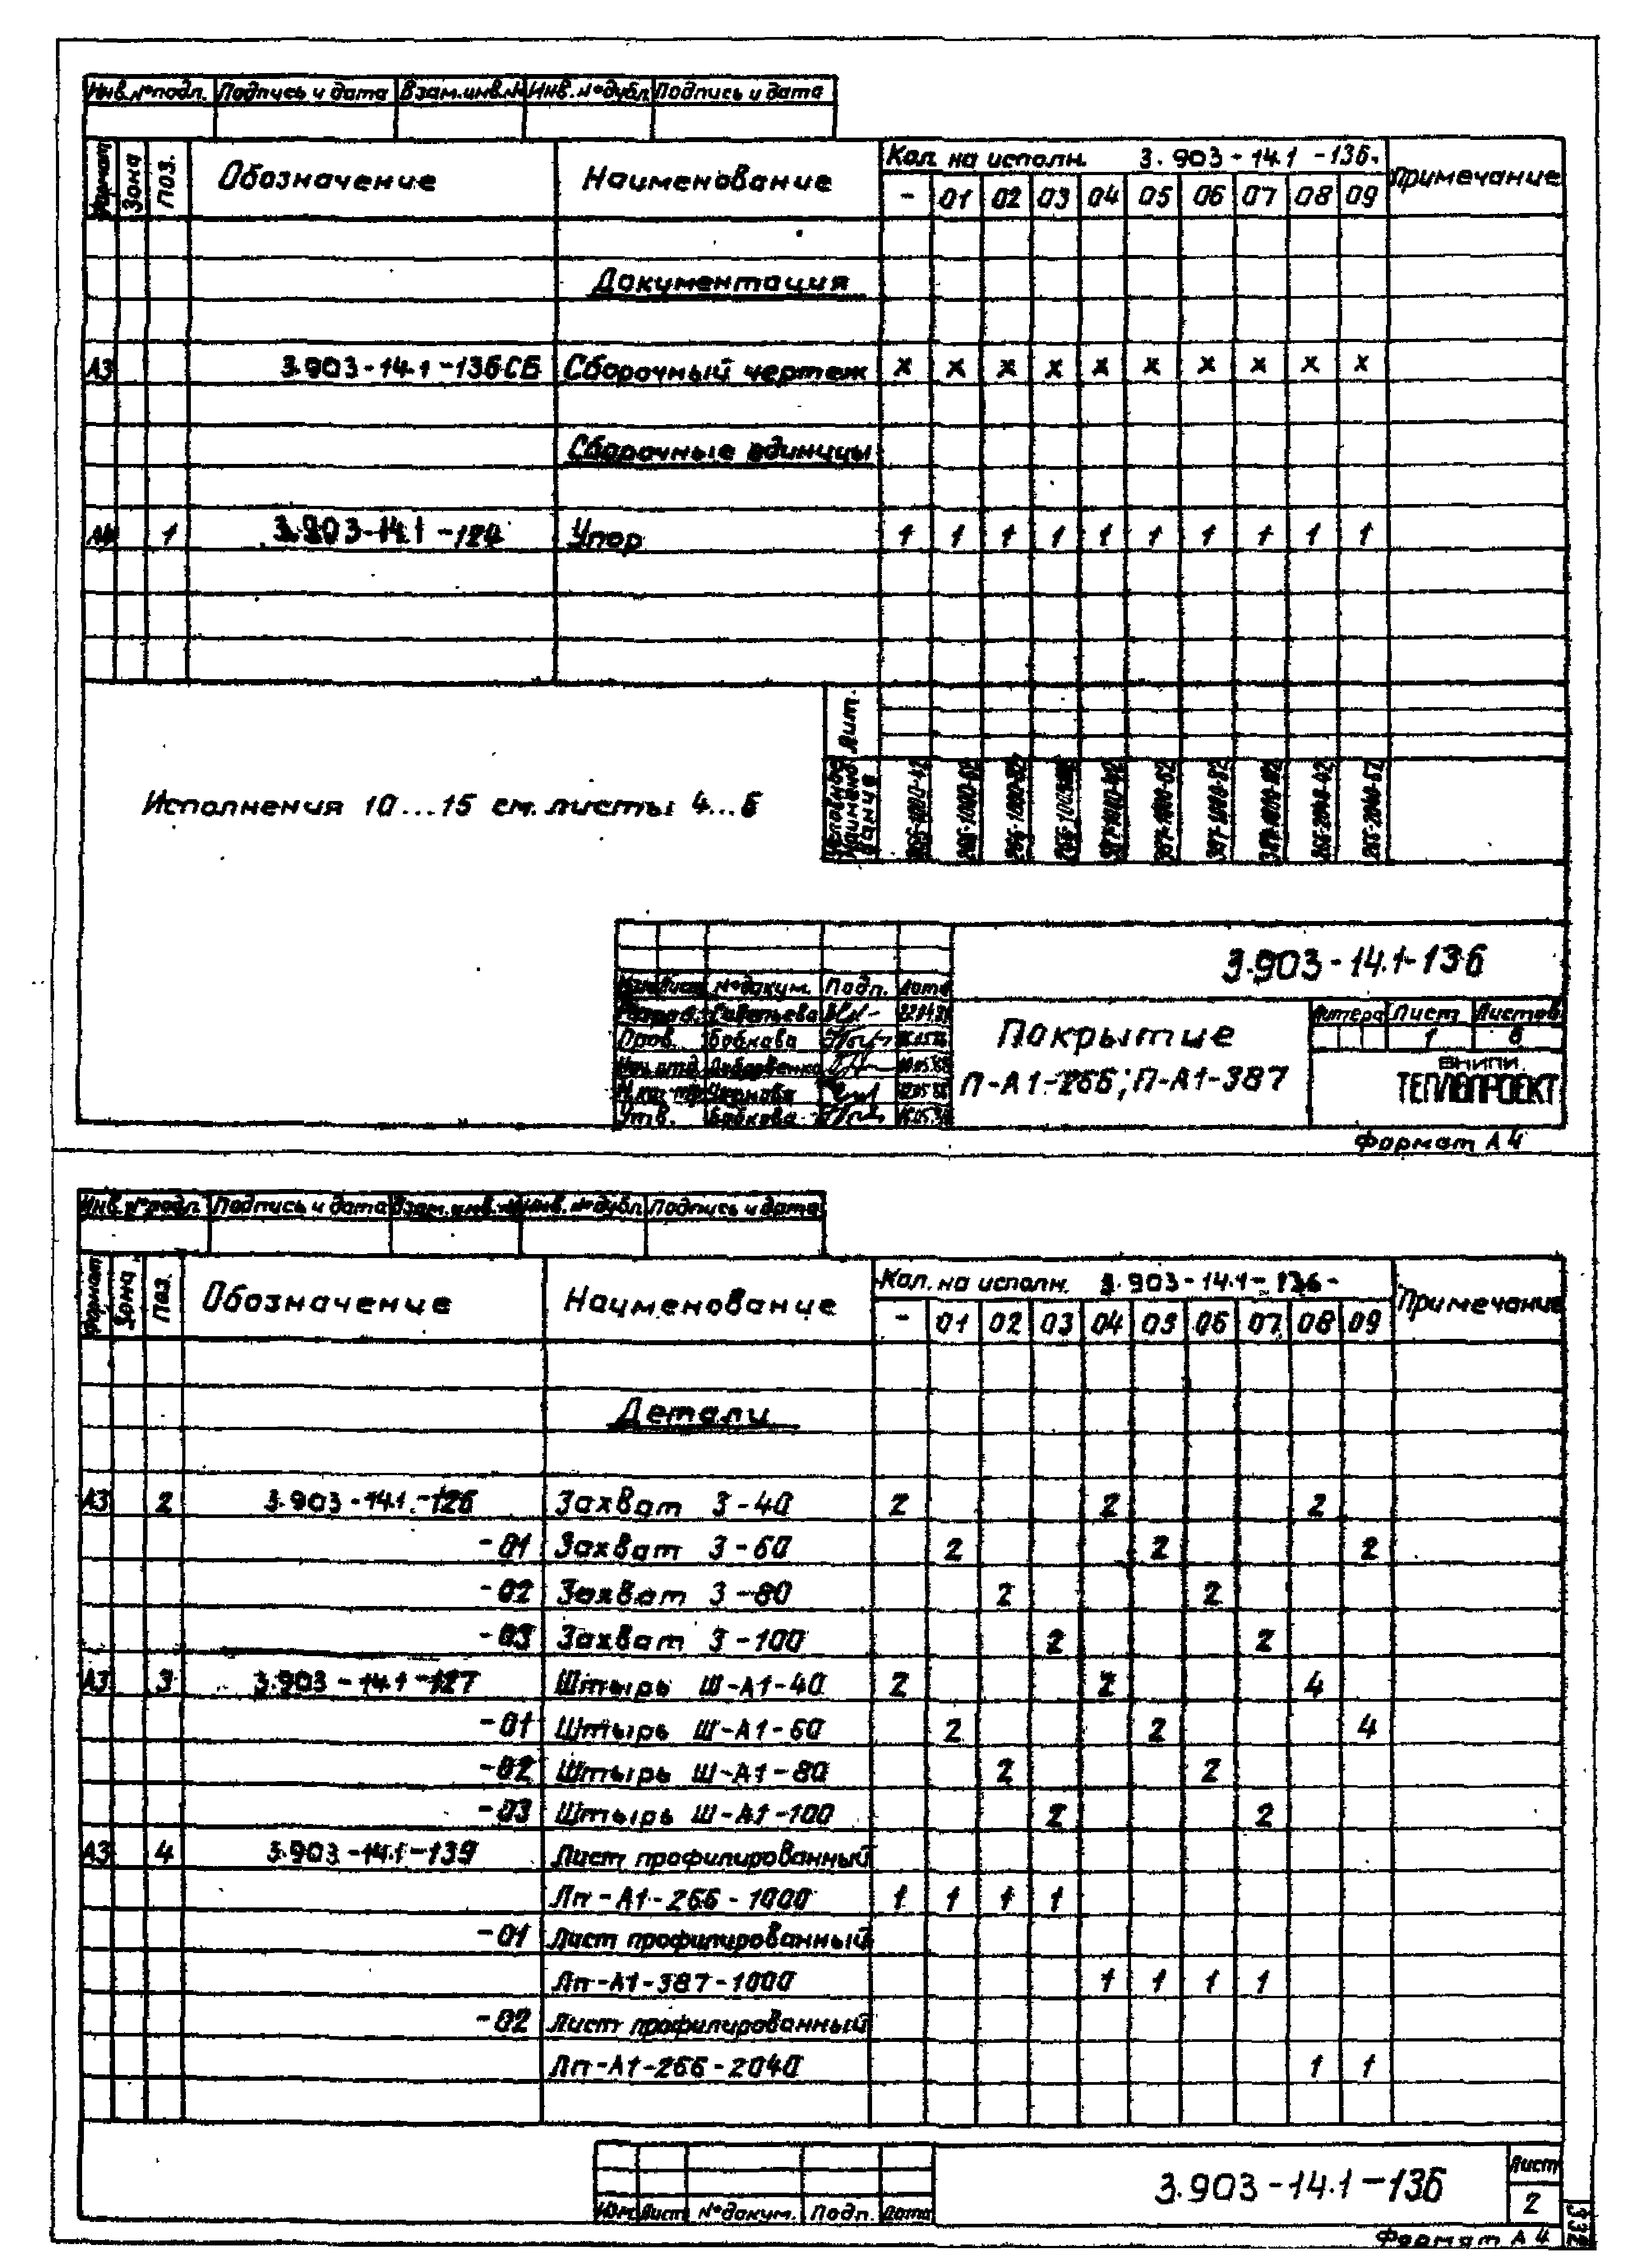 Инв.№подл. Подпись и дата Взам.инв.№ Инв.№дубл Подпись и дата
Формат Зона Поз. Обозначение Наименование Кол на исполн. 3.903-14.1-136- Примечание
- 01 02 03 04 05 06 07 08 09
Документация
А3 3.903-14.1-136СБ Сборочный чертеж х х х х х х х х х х
Сборочные единицы
А4 1 3.903-14.1-124 Упор 1 1 1 1 1 1 1 1 1 1
Лит.
Исполнения 10...15 см. листы 4...6
Условное наименование 266-1000-42 266-1000-62 266-1000-82 387-1000-62 387-1000-82 266-2040-42 266-2040-62
3.903-14.1-136
Изм Лист №докум. Подп. Дата
Разраб. Савельева
Пров. Бобкова
Нач.отд.
Н.контр Чернова
Утв. Бобкова
Покрытие
П-А1-266; П-А1-387
Литера Лист Листов
1 6
ВНИПИ
ТЕПЛОПРОЕКТ
Формат А4
Инв.№подл. Подпись и дата Взам.инв.№ Инв.№дубл. Подпись и дата
Формат Зона Поз. Обозначение Наименование Кол. на исполн. 3.903-14.1-136- Примечание
- 01 02 03 04 05 06 07 08 09
Детали
А3 2 3.903-14.1-126 Захват З-40 2 2 2
-01 Захват З-60 2 2 2
-02 Захват З-80 2 2
-03 Захват З-100 2 2
А3 3 3.903-14.1-127 Штырь Ш-А1-40 2 2 4
-01 Штырь Ш-А1-60 2 2 4
-02 Штырь Ш-А1-80 2 2
-03 Штырь Ш-А1-100 2 2
А3 4 3.903-14.1-139 Лист профилированный
Лп-А1-266-1000 1 1 1 1
-01 Лист профилированный
Лп-А1-387-1000 1 1 1 1
-02 Лист профилированный
Лп-А1-266-2040 1 1
3.903-14.1-136
Лист
2
Изм Лист №докум. Подп. Дата
Формат А4